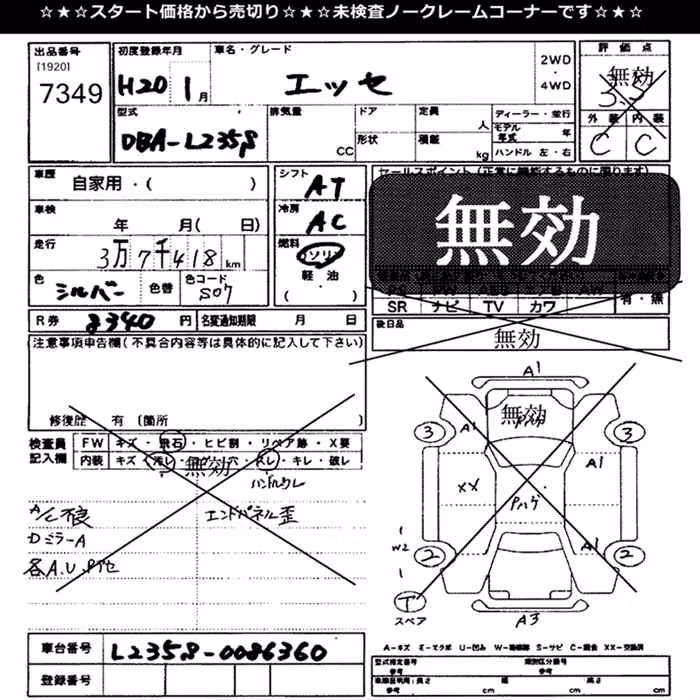 ☆★☆スタート価格から売切り☆★☆未検査ノークレームコーナーです☆★☆
出品番号 初度登録年月 車名・グレード 評価点
[1920] 7349 H20 1月 エッセ 2WD・4WD 無効 3.5
型式 排気量 ドア 定員 ディーラー・並行 外装 内装
DBA-L235S CC 形状 積載 人 kg モデル年式 年 ハンドル 左・右 C C
車歴 自家用・( ) シフト AT セールスポイント(正常に機能するものに限ります)
車検 年 月( 日) 冷房 AC 無効
走行 3万7千418km 燃料 ガソリン
色 シルバー 色替 色コード S07 軽・油 ( )
SR ナビ TV カワ 有・無
R券 8340円 名変通知期限 月 日 後日品
無効
注意事項申告欄(不具合内容等は具体的に記入して下さい)
修復歴 有 (箇所 )
検査員記入欄 FW キズ・飛石・ヒビ割・リペア跡・X要
内装 キズ・汚レ・コゲ・穴・スレ・キレ・破レ
無効
ハンドルスレ
A/C不良 エンドパネル歪
Dミラー A
各A.U.Pサビ
A1
無効
3 A1 3
A1
XX Pハゲ
1
W2
A1
2 2
1
T
スペア A3
A-キズ E-エクボ U-凹み W-補修跡 S-サビ C-腐食 XX-交換済
車台番号 L235S-0086360
登録番号
型式指定番号 参考 類別区分番号 参考
車検証明用:長さ 参考 cm 幅 cm 高さ cm